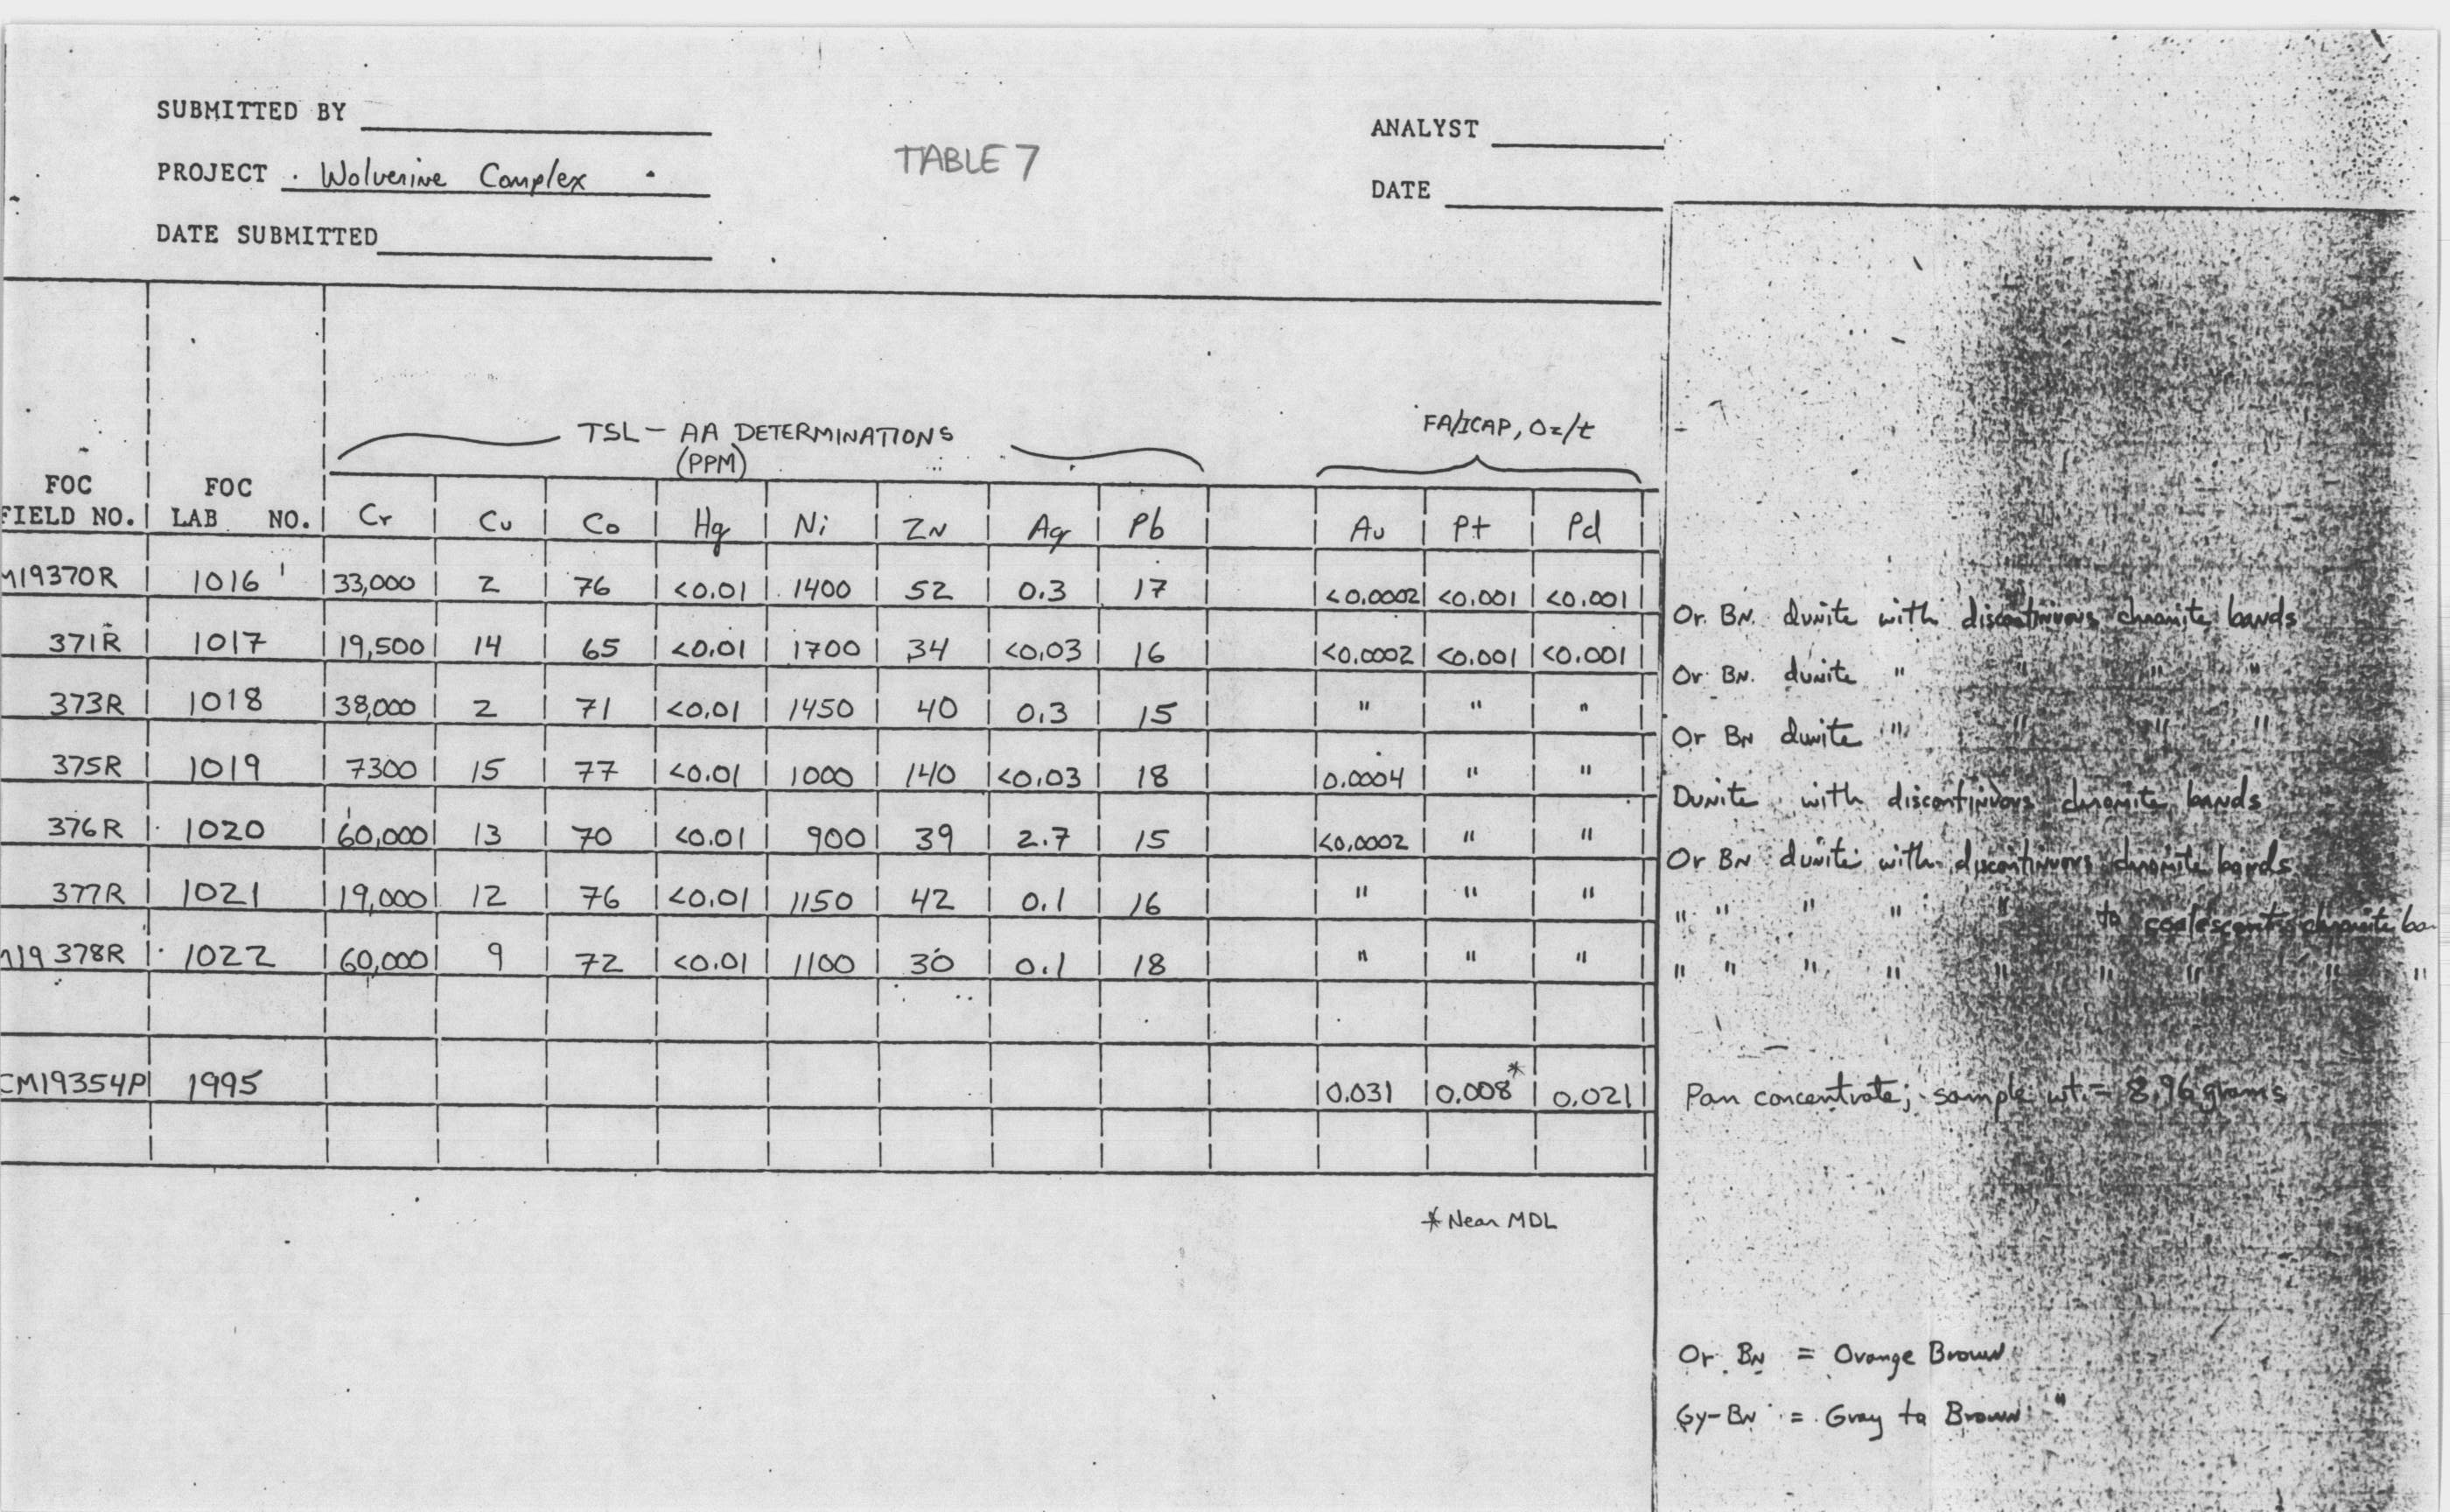 SUBMITTED BY
ANALYST
PROJECT Wolverine Complex
TABLE 7
DATE
DATE SUBMITTED
TSL - AA DETERMINATIONS
(PPM)
FA/ICAP, Oz/t
FOC FIELD NO. FOC LAB NO. Cr Cu Co Hg Ni Zn Ag Pb Au Pt Pd
M19370R 1016 33,000 2 76 <0.01 1400 52 0.3 17 <0.0002 <0.001 <0.001 Or. Bn. dunite with discontinuous chromite bands
371R 1017 19,500 14 65 <0.01 1700 34 <0.03 16 <0.0002 <0.001 <0.001 Or Bn. dunite " " " "
373R 1018 38,000 2 71 <0.01 1450 40 0.3 15 " " " Or Bn dunite " " " "
375R 1019 7300 15 77 <0.01 1000 140 <0.03 18 0.0004 " " Dunite with discontinuous chromite bands
376R 1020 60,000 13 70 <0.01 900 39 2.7 15 <0.0002 " " Or Bn dunite with discontinuous chromite bands
377R 1021 19,000 12 76 <0.01 1150 42 0.1 16 " " " " " " " " to coalescent chromite ba
M19 378R 1022 60,000 9 72 <0.01 1100 30 0.1 18 " " " " " " " " " " " "
CM19354P 1995 0.031 0.008* 0.021 Pan concentrate; sample wt. = 8.96 grams
* Near MDL
Or Bn = Orange Brown
Gy-Bn = Gray to Brown